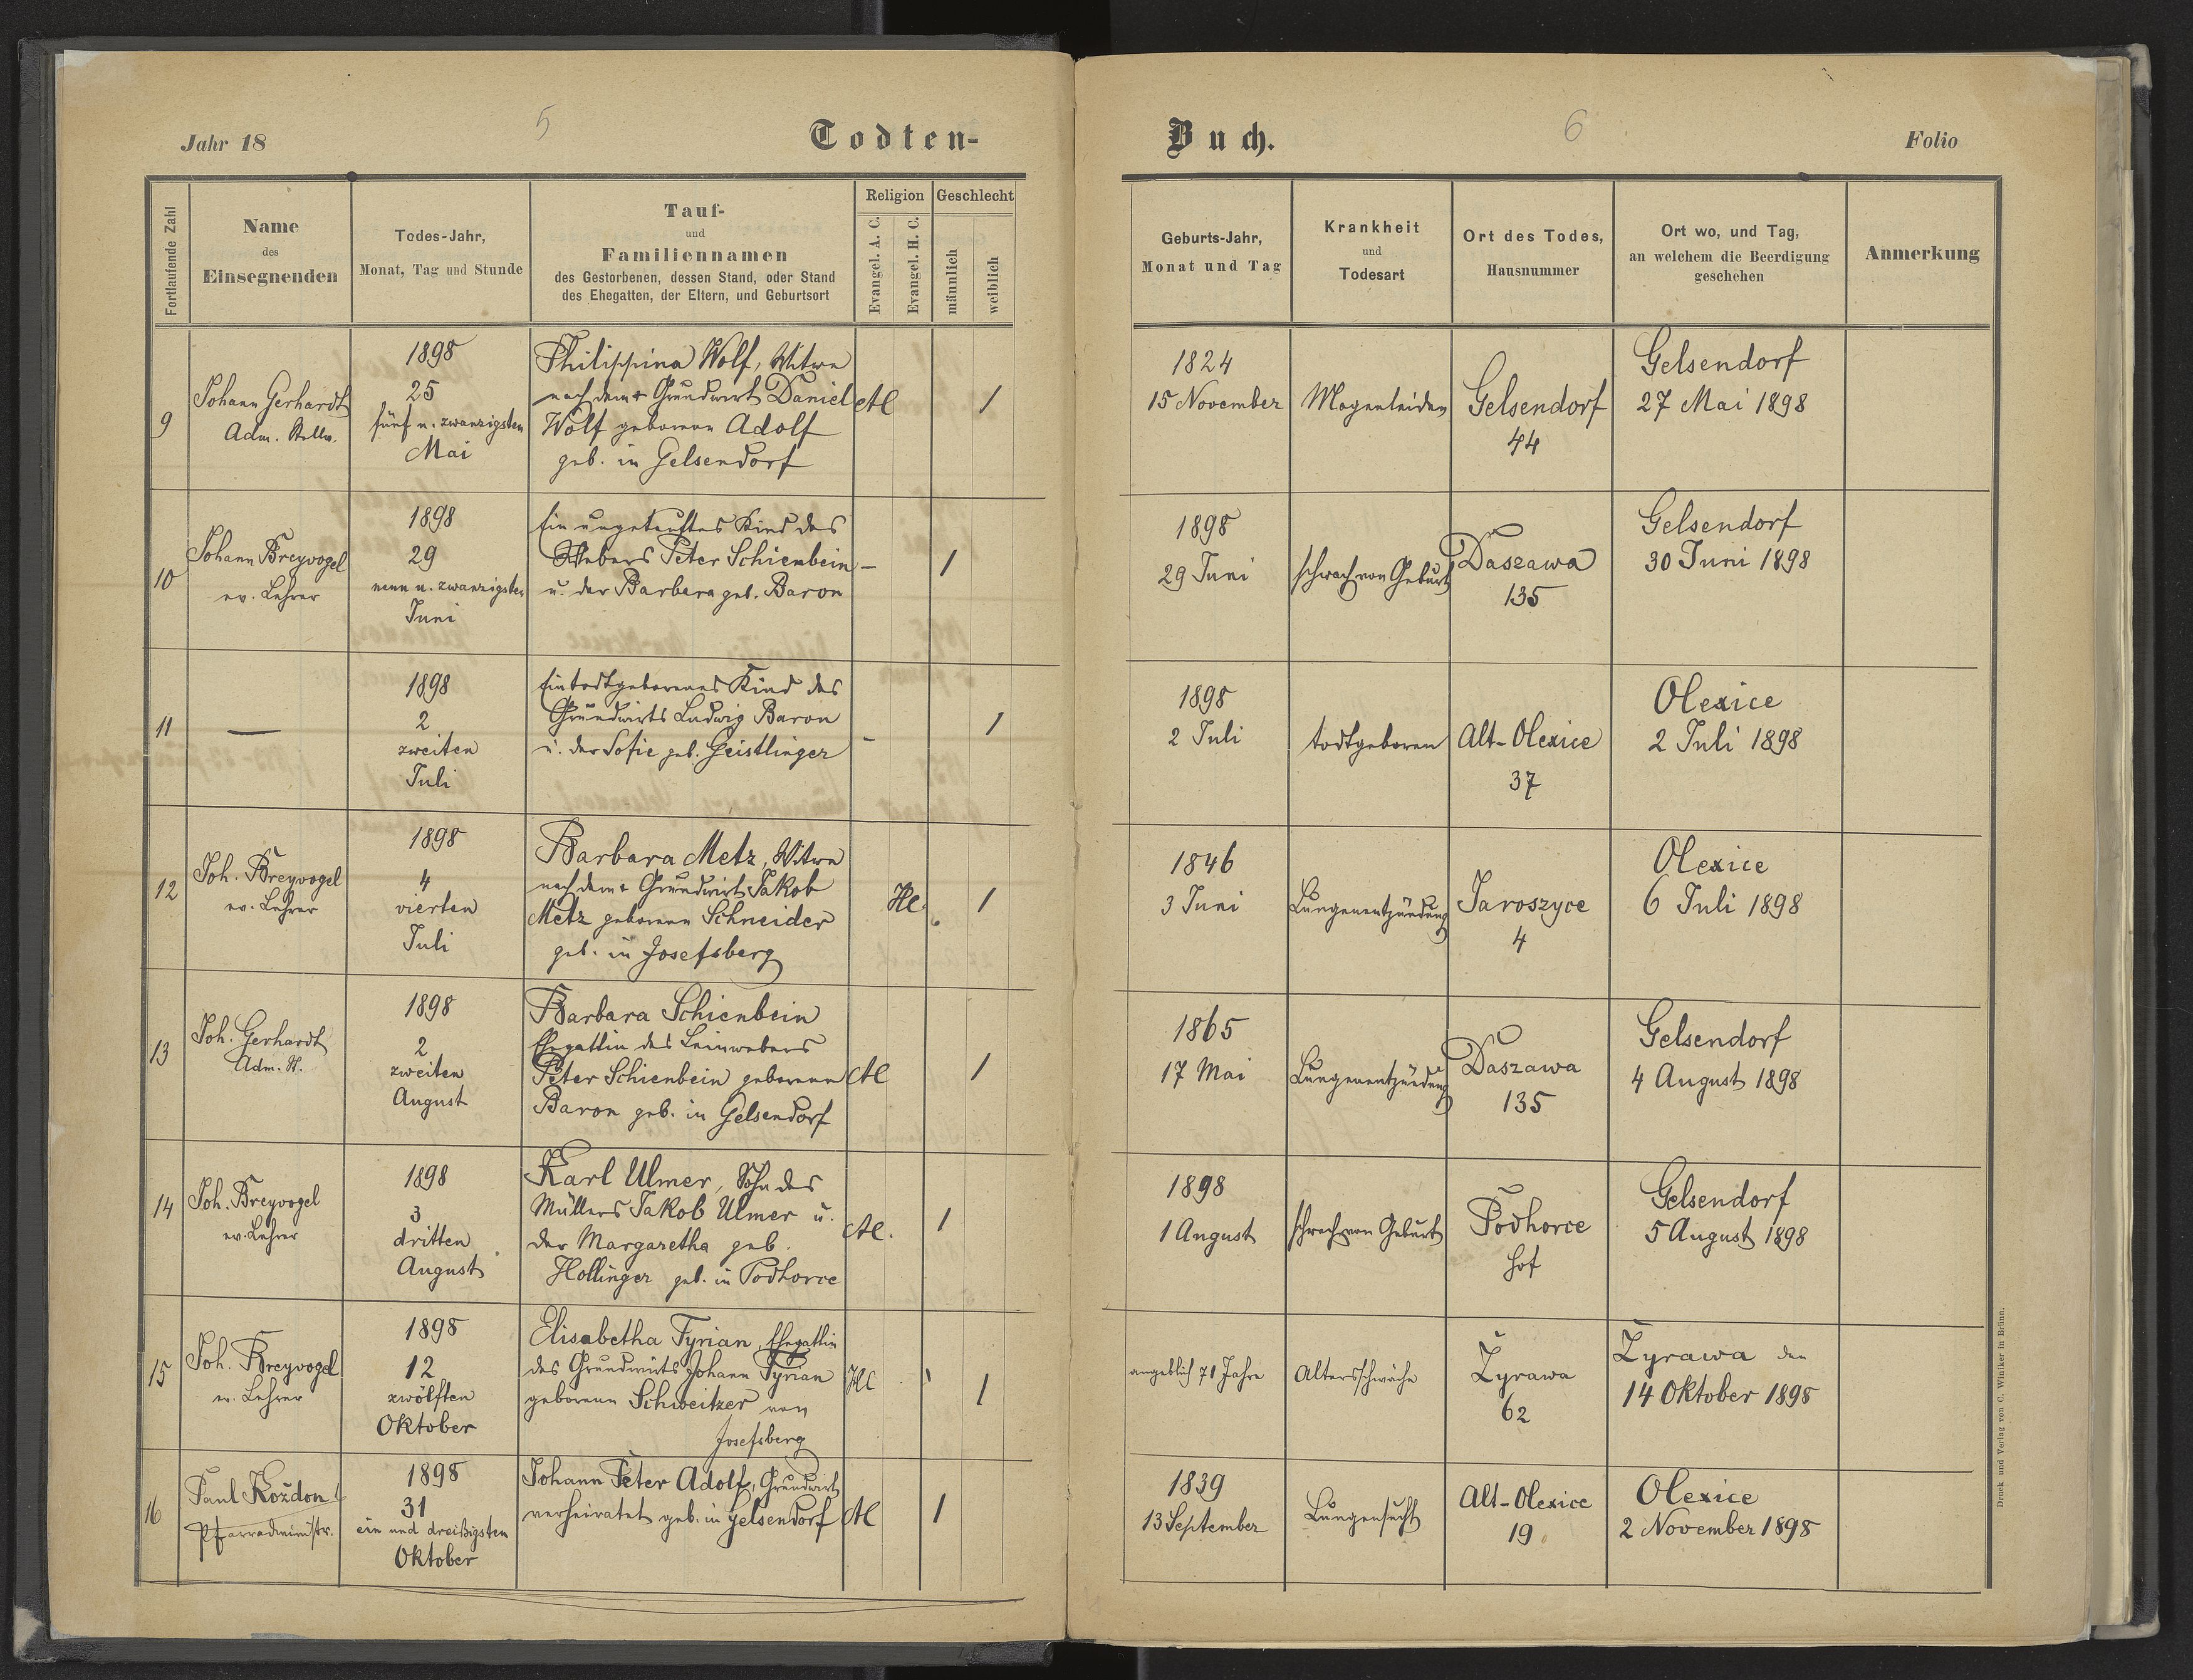 Jahr 18
5
Todten-
Fortlaufende Zahl
Name
des
Einsegnenden
Todes-Jahr,
Monat, Tag und Stunde
Tauf-
und
Familiennamen
des Gestorbenen, dessen Stand, oder Stand
des Ehegatten, der Eltern, und Geburtsort
Religion
Evangel. A. C.
Evangel. H. C.
Geschlecht
männlich
weiblich
9
Johann Gerhardt
Adm. Stellv.
1898
25
fünf u. zwanzigsten
Mai
Philippina Wolf, Witwe
nach dem + Grundwirt Daniel
Wolf geborene Adolf
geb. in Gelsendorf
AC
/
10
Johann Breyvogel
ev. Lehrer
1898
29
neun u. zwanzigsten
Juni
Ein ungetauftes Kind des
Webers Peter Schienbein
u. der Barbara geb. Baron
–
/
11
—
1898
2
zweiten
Juli
Ein todtgeborenes Kind des
Grundwirts Ludwig Baron
u. der Sofie geb. Geistlinger
–
/
12
Joh. Breyvogel
ev. Lehrer
1898
4
vierten
Juli
Barbara Metz, Witwe
nach dem + Grundwirt Jakob
Metz geborene Schneider
geb. in Josefsberg
HC.
/
13
Joh. Gerhardt
Adm. St.
1898
2
zweiten
August
Barbara Schienbein
Ehegattin des Leinwebers
Peter Schienbein geborene
Baron geb. in Gelsendorf
AC
/
14
Joh. Breyvogel
ev. Lehrer
1898
3
dritten
August
Karl Ulmer, Sohn des
Müllers Jakob Ulmer u.
der Margaretha geb.
Hollinger geb. in Podhorce
AC.
/
15
Joh. Breyvogel
ev. Lehrer
1898
12
zwölften
Oktober
Elisabetha Tyrian, Ehegattin
des Grundwirts Johann Tyrian
geborene Schweitzer von
Josefsberg
HC
/
16
Paul Kożdoń
Pfarradministr.
1898
31
ein und dreißigsten
Oktober
Johann Peter Adolf, Grundwirt
verheiratet geb. in Gelsendorf
AC
/
Buch.
6
Folio
Geburts-Jahr,
Monat und Tag
Krankheit
und
Todesart
Ort des Todes,
Hausnummer
Ort wo, und Tag,
an welchem die Beerdigung
geschehen
Anmerkung
1824
15 November
Magenleiden
Gelsendorf
44
Gelsendorf
27 Mai 1898
1898
29 Juni
schwach von Geburt
Daszawa
135
Gelsendorf
30 Juni 1898
1898
2 Juli
todtgeboren
Alt-Olexice
37
Olexice
2 Juli 1898
1846
3 Juni
Lungenentzündung
Jaroszyce
4
Olexice
6 Juli 1898
1865
17 Mai
Lungenentzündung
Daszawa
135
Gelsendorf
4 August 1898
1898
1 August
schwach von Geburt
Podhorce
Hof
Gelsendorf
5 August 1898
angeblich 71 Jahre
Altersschwäche
Zyrawa
62
Zyrawa den
14 Oktober 1898
1839
13 September
Lungensucht
Alt-Olexice
19
Olexice
2 November 1898
Druck und Verlag von C. Winiker in Brünn.